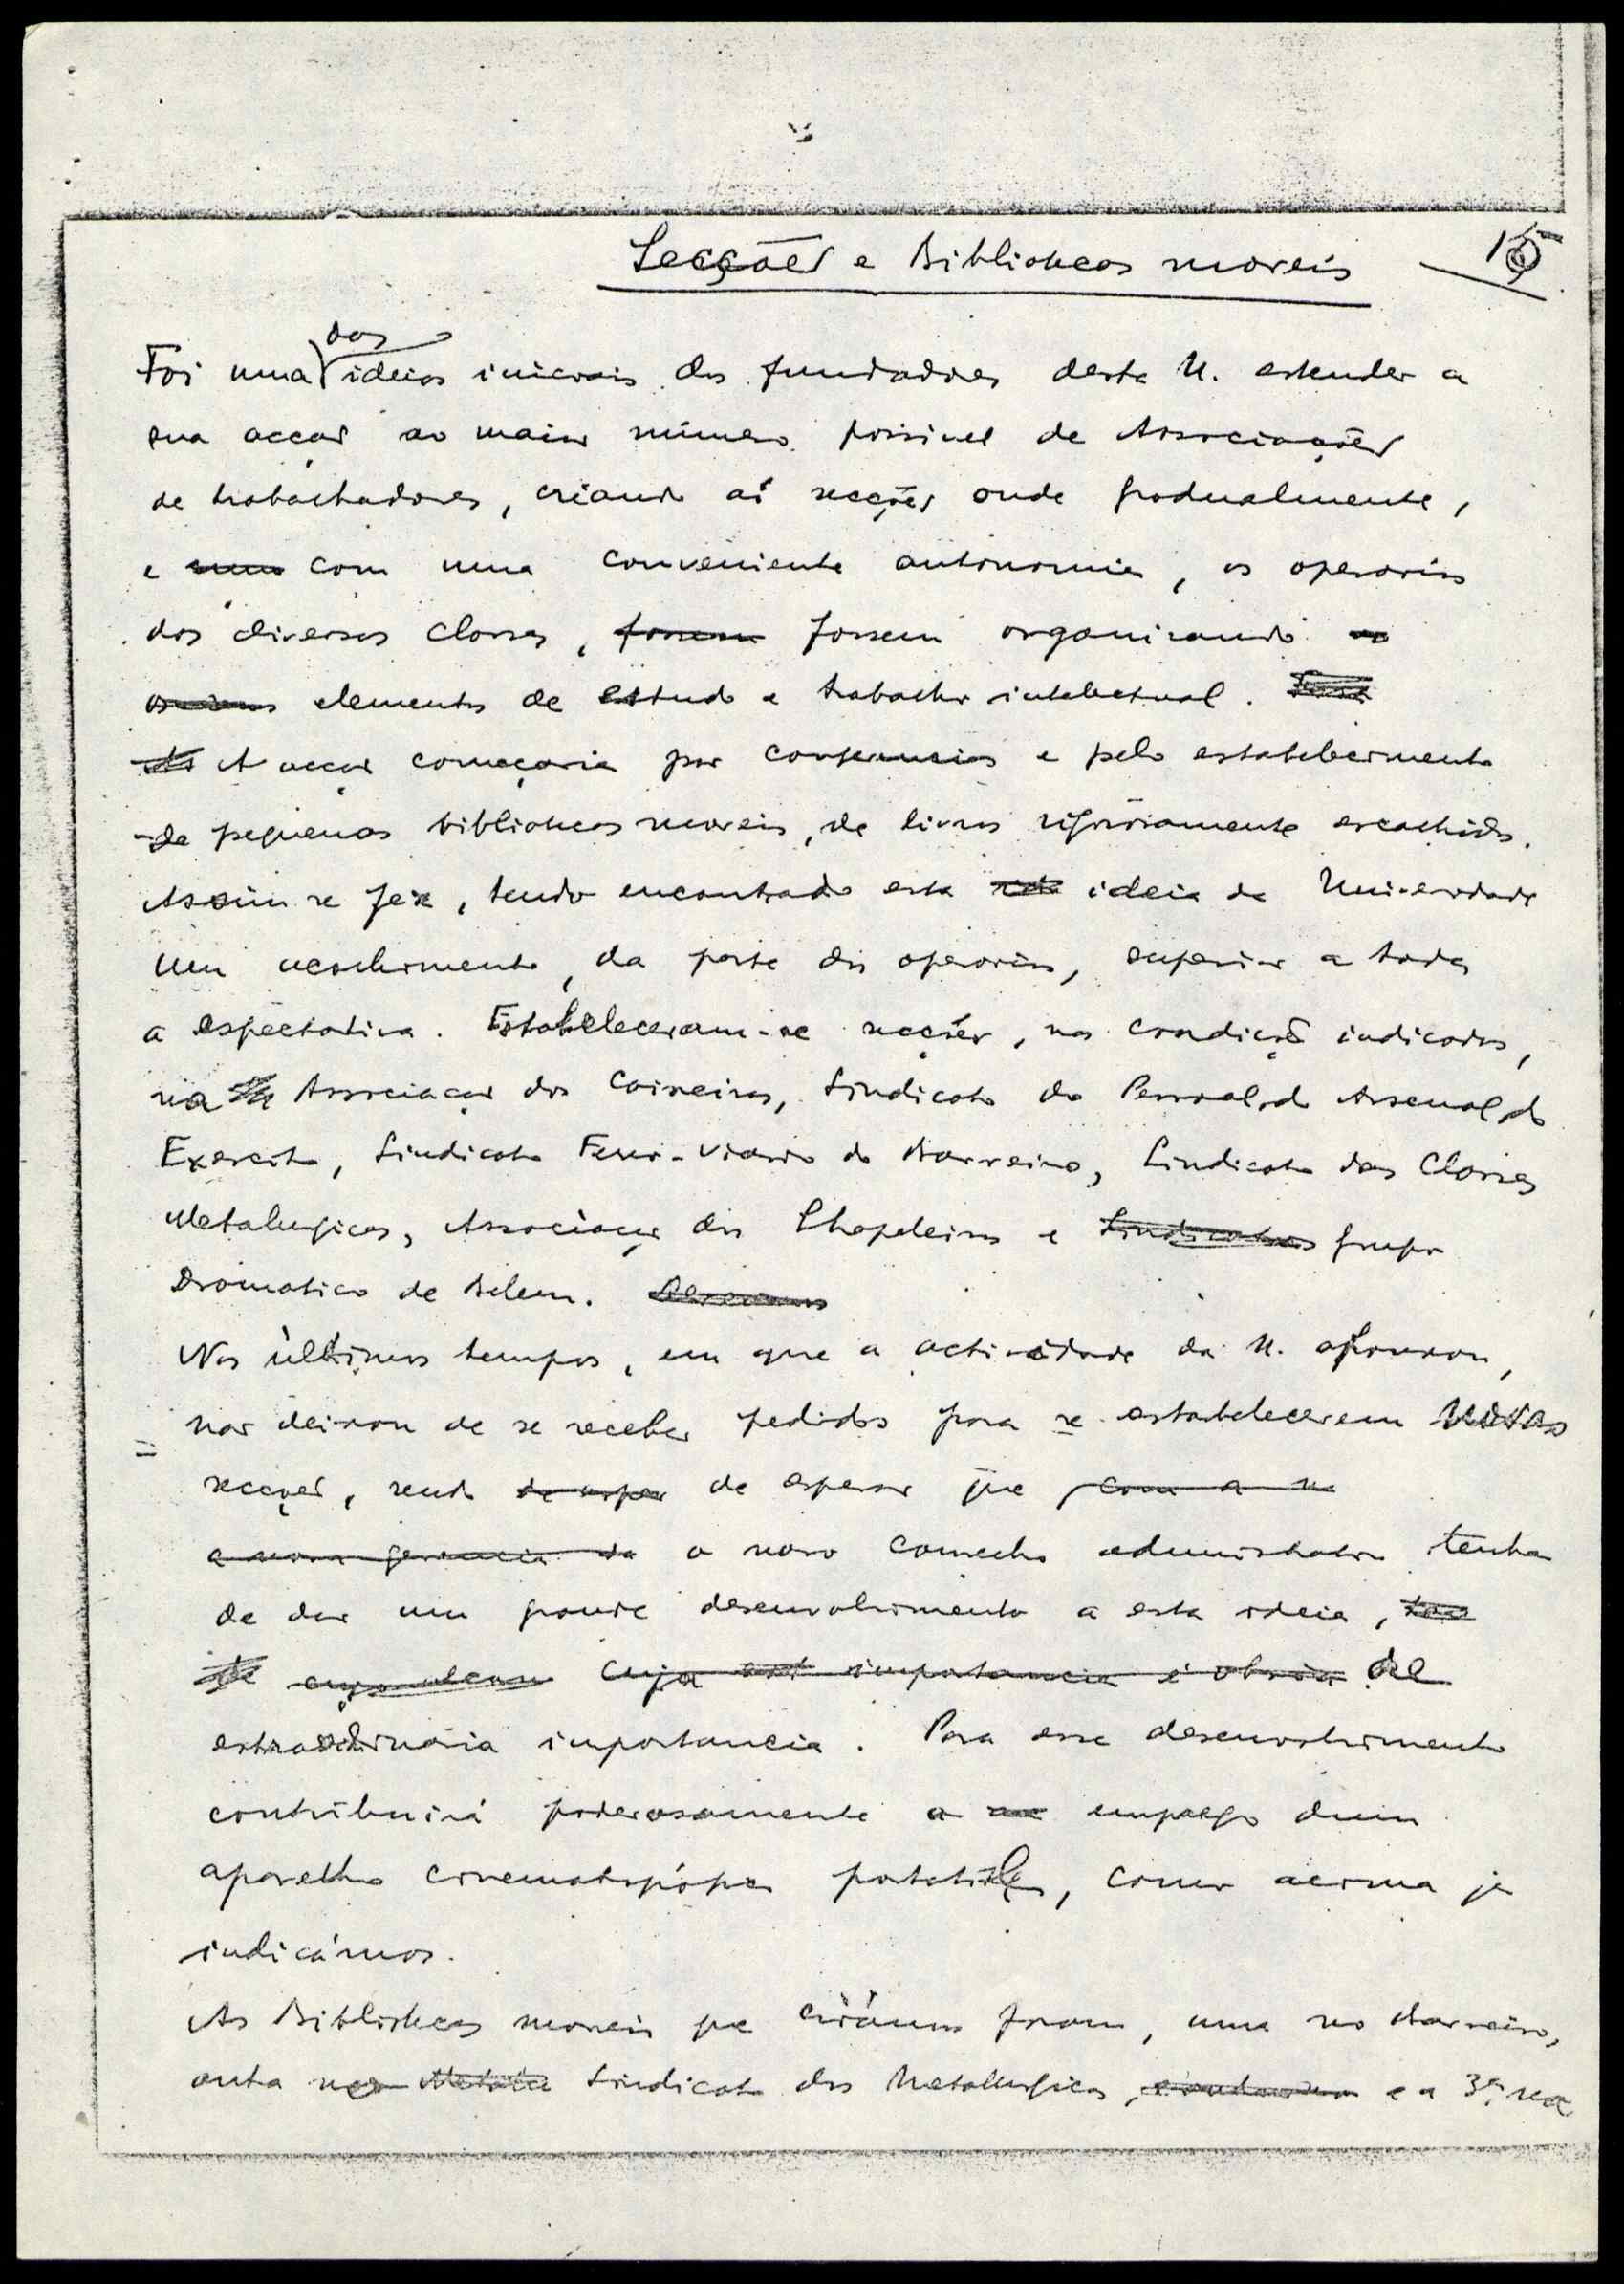 Secções e Bibliotecas moveis
15
das
Foi uma ideias iniciais dos fundadores desta U. estender a
sua acção ao maior número possivel de Associações
de trabalhadores, criando aí secções onde gradualmente,
e com uma conveniente autonomia, os operarios
das diversas classes, fossem fossem organisando os
elementos de estudo e trabalho intelectual.
A acção começaria por conferencias e pelo estabelecimento
de pequenas bibliotecas moveis, de livros rigorosamente escolhidos.
Assim se fez, tendo encontrado esta ideia da Universidade
um acolhimento, da parte dos operarios, superior a toda
a espectativa. Estabeleceram-se secções, nas condições indicadas,
na Associação dos Caixeiros, Sindicato do Pessoal do Arsenal do
Exercito, Sindicato Ferro-Viario do Barreiro, Sindicato das Classes
Metalurgicas, Associação dos Chapeleiros e Sindicatos Grupo
Dramatico de Belem.
Nos últimos tempos, em que a actividade da U. afrouxou,
não deixou de se receber pedidos para se estabelecerem novas
secções, sendo de esper de esperar que com a n
a nova gerencia da o novo conselho administrativo tenha
de dar um grande desenvolvimento a esta ideia,
cuja importancia é obvia de
extraordinária importancia. Para esse desenvolvimento
contribuirá poderosamente o emprego dum
aparelho cinematográfico portatil, como acima já
indicámos.
As Bibliotecas moveis que criámos foram, uma no Barreiro,
outra no Sindicato dos Metalurgicos, e a 3ª na